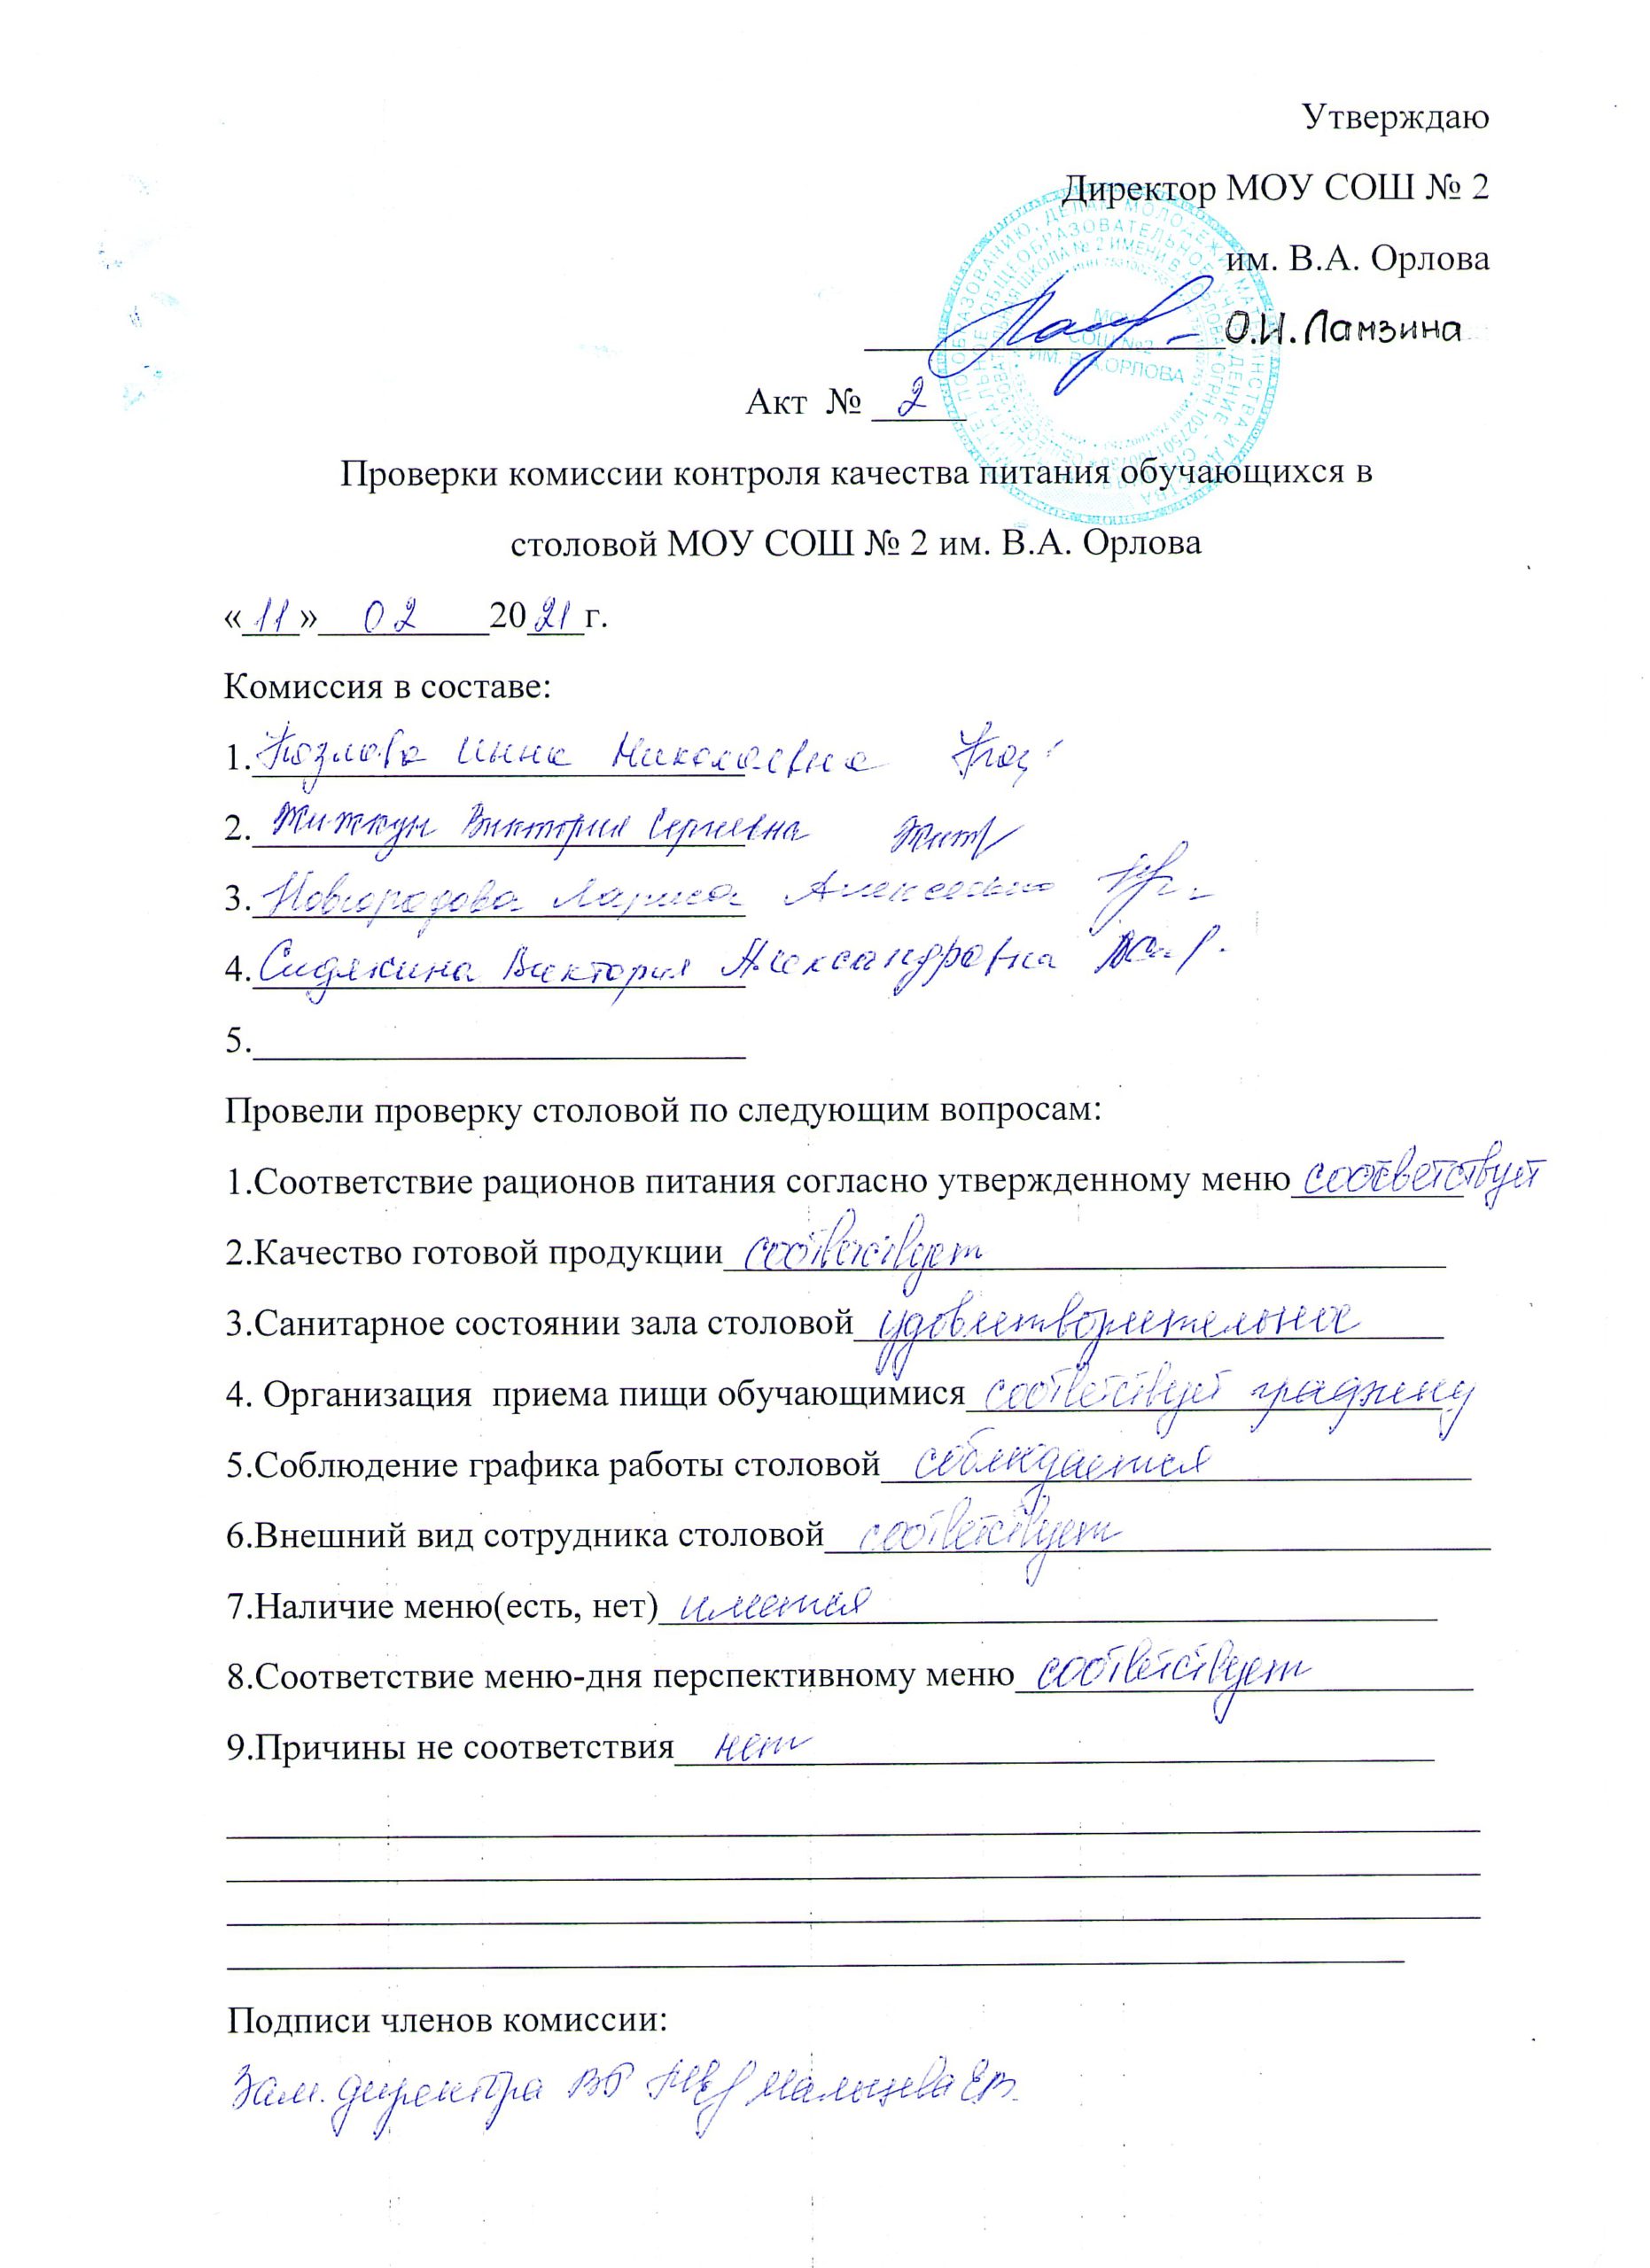 Утверждаю
Директор МОУ СОШ № 2
им. В.А. Орлова
О.И. Ламзина
Акт № 2
Проверки комиссии контроля качества питания обучающихся в
столовой МОУ СОШ № 2 им. В.А. Орлова
«11» 02 2021 г.
Комиссия в составе:
1. Козлова Инна Николаевна
2. Жижкун Виктория Сергеевна
3. Новгородова Лариса Алексеевна
4. Сидякина Виктория Александровна
5.
Провели проверку столовой по следующим вопросам:
1.Соответствие рационов питания согласно утвержденному меню соответствует
2.Качество готовой продукции соответствует
3.Санитарное состоянии зала столовой удовлетворительное
4. Организация приема пищи обучающимися соответствует графику
5.Соблюдение графика работы столовой соблюдается
6.Внешний вид сотрудника столовой соответствует
7.Наличие меню(есть, нет) имеется
8.Соответствие меню-дня перспективному меню соответствует
9.Причины не соответствия нет
Подписи членов комиссии:
Зам. директора ВР Мальцева Е.В.